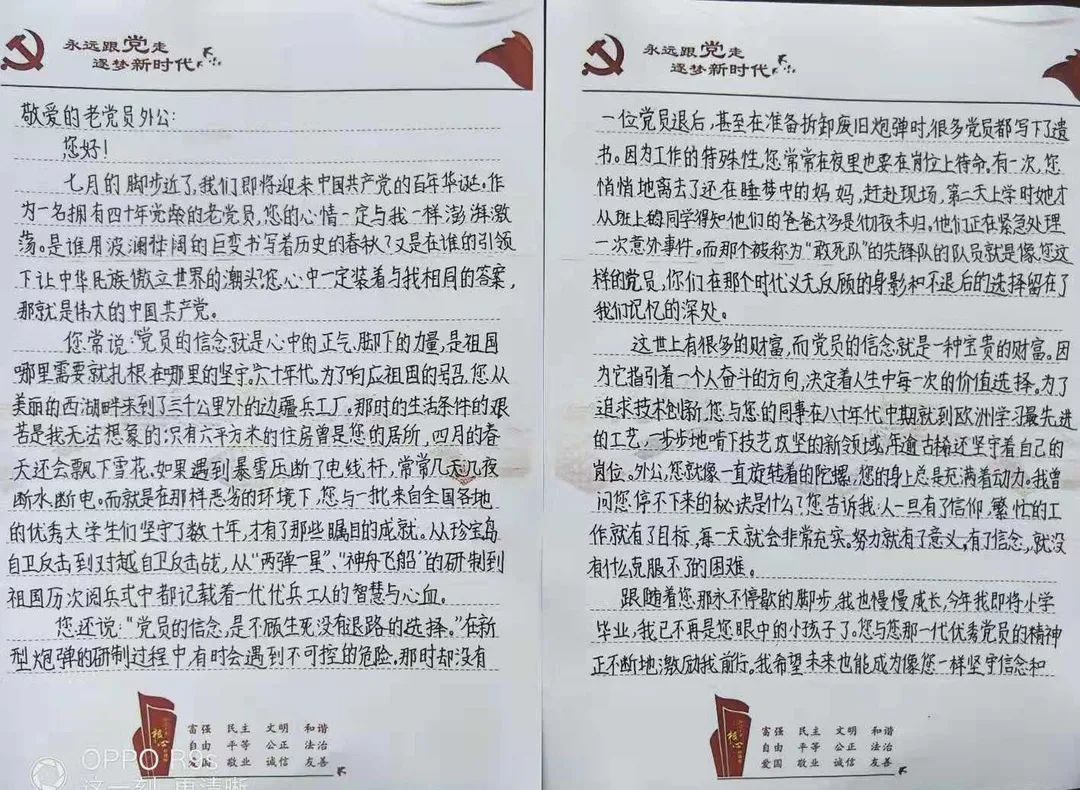 永远跟党走
逐梦新时代
敬爱的老党员外公:
您好!
七月的脚步近了,我们即将迎来中国共产党的百年华诞。作
为一名拥有四十年党龄的老党员,您的心情一定与我一样澎湃激
荡。是谁用波澜壮阔的巨变书写着历史的春秋?又是在谁的引领
下让中华民族傲立世界的潮头?您心中一定装着与我相同的答案,
那就是伟大的中国共产党。
您常说:“党员的信念就是心中的正气、脚下的力量,是祖国
哪里需要就扎根在哪里的坚守。”六十年代,为了响应祖国的号召,您从
美丽的西湖畔来到了三千公里外的边疆兵工厂。那时的生活条件的艰
苦是我无法想象的:只有六平方米的住房曾是您的居所,四月的春
天还会飘下雪花。如果遇到暴雪压断了电线杆,常常几天几夜
断水断电。而就是在那样恶劣的环境下,您与一批来自全国各地
的优秀大学生们坚守了数十年,才有了那些瞩目的成就。从珍宝岛
自卫反击到对越自卫反击战,从“两弹一星”、“神舟飞船”的研制到
祖国历次阅兵式中都记载着一代代兵工人的智慧与心血。
您还说:“党员的信念,是不顾生死没有退路的选择。”在新
型炮弹的研制过程中,有时会遇到不可控的危险。那时却没有
富强 民主 文明 和谐
自由 平等 公正 法治
爱国 敬业 诚信 友善
核心
OPPO R9s
这一刻 更清晰
永远跟党走
逐梦新时代
一位党员退后,甚至在准备拆卸废旧炮弹时,很多党员都写下了遗
书。因为工作的特殊性,您常常在夜里也要在岗位上待命。有一次,您
悄悄地离去了还在睡梦中的妈妈,赶赴现场,第二天上学时她才
从班上的同学得知他们的爸爸大多是彻夜未归。他们正在紧急处理
一次意外事件。而那个被称为“敢死队”的先锋队的队员就是像您这
样的党员,你们在那个时代义无反顾的身影和不退后的选择留在了
我们记忆的深处。
这世上有很多的财富,而党员的信念就是一种宝贵的财富。因
为它指引着一个人奋斗的方向,决定着人生中每一次的价值选择。为了
追求技术创新,您与您的同事在八十年代中期就到欧洲学习最先进
的工艺,一步步地啃下技艺攻坚的新领域,年逾古稀还坚守着自己的
岗位。外公,您就像一直旋转着的陀螺,您的身上总是充满着动力。我曾
问您,停不下来的秘诀是什么?您告诉我:人一旦有了信仰,繁忙的工
作就有了目标,每一天就会非常充实。努力就有了意义,有了信念,就没
有什么克服不了的困难。
跟随着您那永不停歇的脚步,我也慢慢成长,今年我即将小学
毕业,我已不再是您眼中的小孩子了。您与您那一代优秀党员的精神
正不断地激励我前行。我希望未来也能成为像您一样坚守信念和
富强 民主 文明 和谐
自由 平等 公正 法治
爱国 敬业 诚信 友善
核心